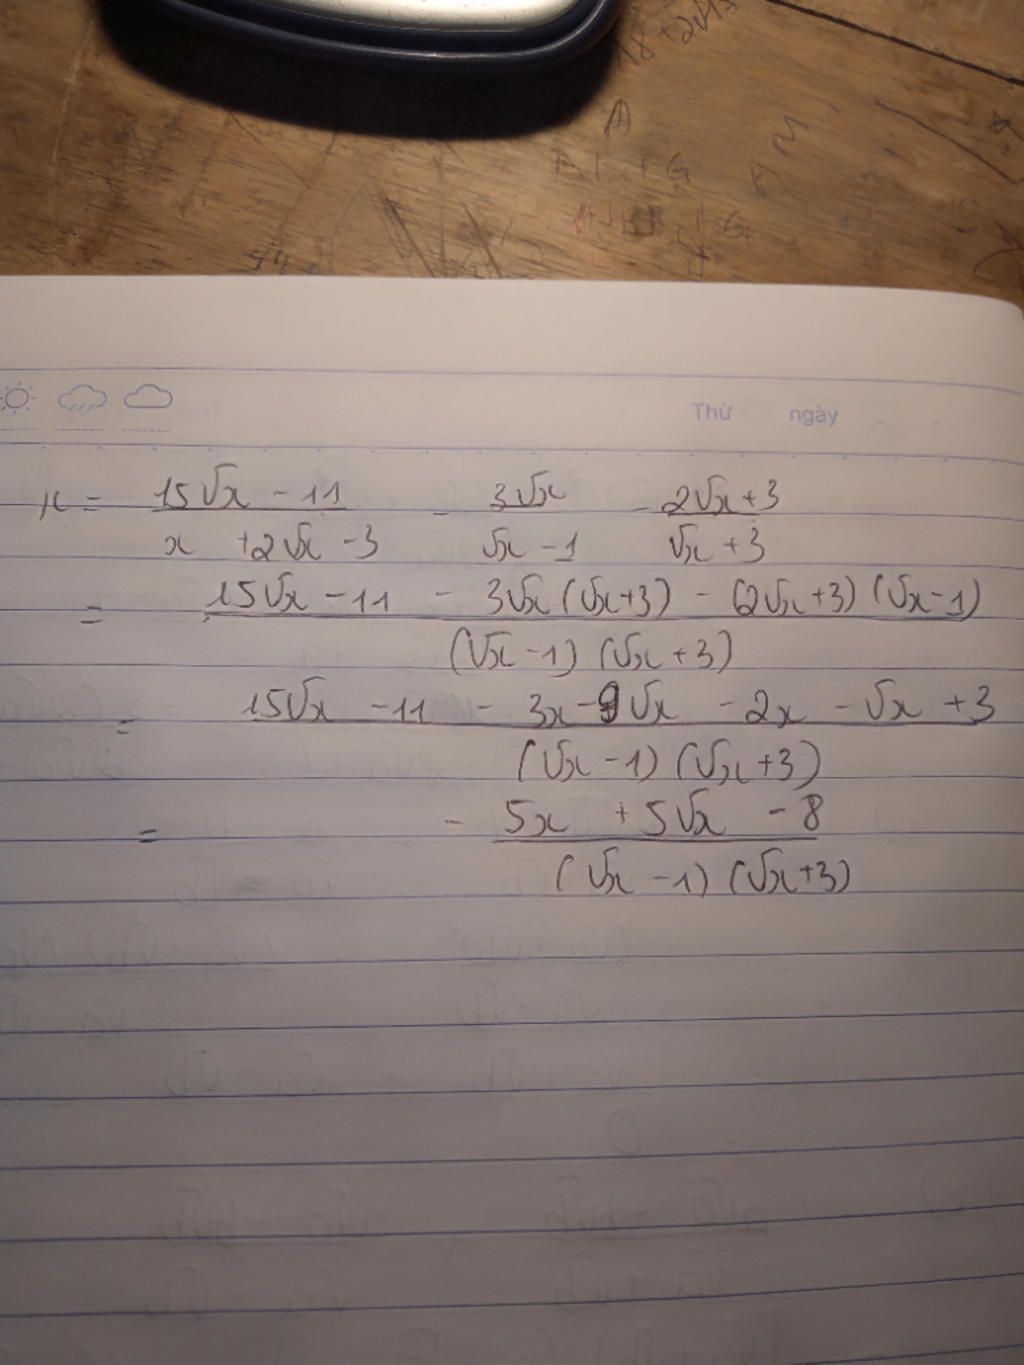 Thứ ngày
K = \frac{15\sqrt{x} - 11}{x + 2\sqrt{x} - 3} - \frac{3\sqrt{x}}{\sqrt{x} - 1} - \frac{2\sqrt{x} + 3}{\sqrt{x} + 3}
= \frac{15\sqrt{x} - 11 - 3\sqrt{x}(\sqrt{x}+3) - (2\sqrt{x}+3)(\sqrt{x}-1)}{(\sqrt{x} - 1)(\sqrt{x} + 3)}
= \frac{15\sqrt{x} - 11 - 3x - 9\sqrt{x} - 2x - \sqrt{x} + 3}{(\sqrt{x} - 1)(\sqrt{x} + 3)}
= - \frac{5x + 5\sqrt{x} - 8}{(\sqrt{x} - 1)(\sqrt{x} + 3)}